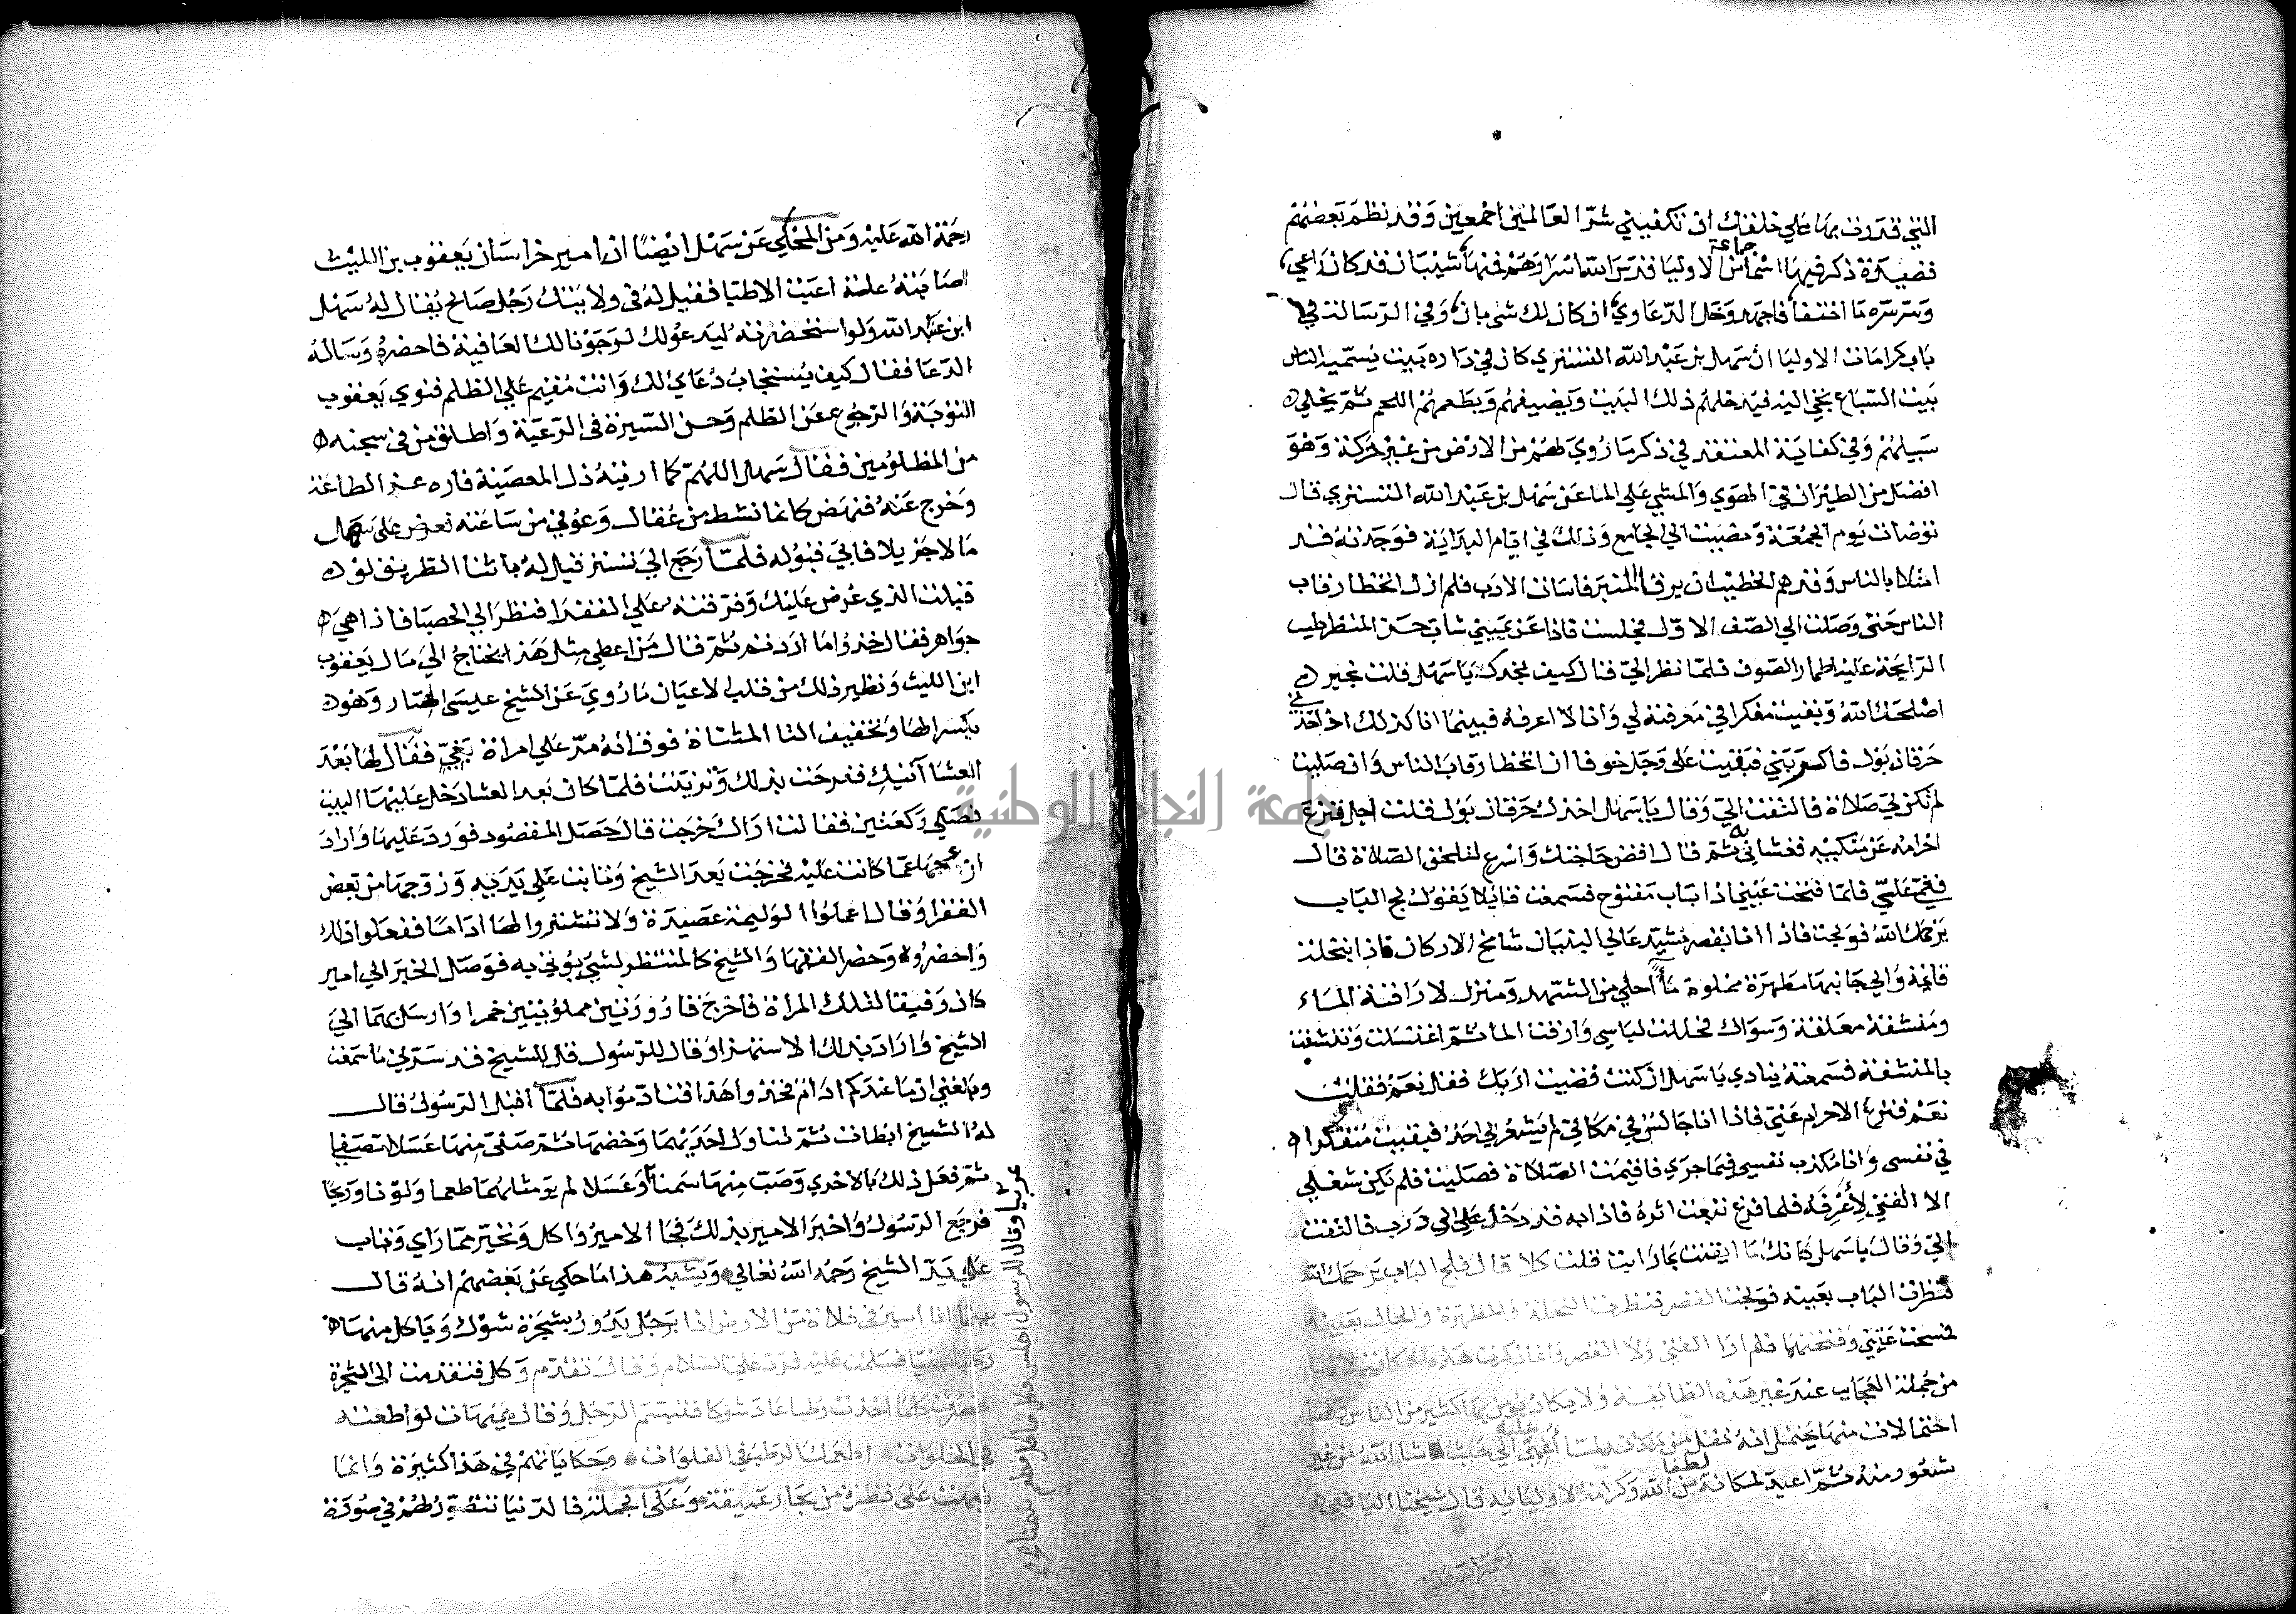 التي قدرت بها علي خلقك ان تكفيني شر العالمين اجمعين وقد نظم بعضهم
قصيدة ذكر فيها اسماء جماعة من الاوليا قدس الله اسرارهم فيها شيبان قد كان راعي
وسره ما اختفا فاجهد وخل الدعاوي ان كان لك شي بان وفي الرسالة في
باب كرامات الاوليا ان سهل بن عبد الله التستري كان في داره بيت يسميه الناس
بيت السباع تجي اليه فيدخلهم ذلك البيت ويضيفهم ويطعمهم اللحم ثم يخلي
سبيلهم وفي كفاية المعتقد في ذكر ما زوي لهم من الارض من غير حركة وهو
افضل من الطيران في الهوي والمشي علي الما عن سهل بن عبد الله التستري قال
توضات يوم الجمعة ومضيت الي الجامع وذلك في ايام البداية فوجدته قد
امتلا بالناس وقد هم الخطيب ان يرقا المنبر فاسات الادب فلم ازل اتخطا رقاب
الناس حتي وصلت الي الصف الاول فجلست فاذا عن يميني شاب حسن المنظر طيب
الرايحة عليه اطمار الصوف فلما نظر الي قال كيف تجدك يا سهل قلت بخير
اصلحك الله وبقيت مفكرا في معرفته لي وانا لا اعرفه فبينما انا كذلك اذ اخذني
حرقان بول فاكربني فبقيت علي وجل خوفا ان اتخطا رقاب الناس وان صليت
لم تكن لي صلاة فالتفت الي وقال يا سهل اخذك حرقان بول قلت اجل فنزع
احرامه عن منكبيه فغشاني به ثم قال اقض حاجتك واسرع لتلحق الصلاة قال
فغم علي فلما فتحت عيني اذا بباب مفتوح فسمعت قايلا يقول لج الباب
يرحمك الله فولجت فاذا انا بقصر مشيد عالي البنيان شامخ الاركان فاذا بنخلة
قايمة والي جانبها مطهرة مملوة ما احلي من الشهد ومنزل لاراقة الماء
ومنشفة معلقة وسواك فحللت لباسي وارقت الما ثم اغتسلت وتنشفت
بالمنشفة فسمعته ينادي يا سهل ان كنت قضيت اربك فقل نعم فقلت
نعم فنزع الاحرام عني فاذا انا جالس في مكاني لم يشعر بي احد فبقيت متفكرا
في نفسي وانا مكذب نفسي فيما جري فاقيمت الصلاة فصليت فلم يكن شغلي
الا الفتي لاعرفه فلما فرغ تتبعت اثره فاذا به قد دخل الي درب فالتفت
الي وقال يا سهل كانك ما ايقنت بما رايت قلت كلا قال فلج الباب يرحمك الله
فنظرت الباب بعينه فولجت القصر فنظرت النخلة والمطهرة والحال بعينه
فمسحت عيني وفتحتهما فلم ار الفتي ولا القصر وانما ذكرت هذه الحكاية لانها
من جملة العجايب عند غير هذه الطايفة ولا يكاد يومن بها كثير من الناس ولها
احتمالات منها يحتمل انه نقل من مكانه لما اغمي عليه الي حيث شا الله من غير
شعور منه ثم اعيد لمكانه لطفا من الله وكرامة لاوليايه قال شيخنا اليافعي
رحمة الله عليه
رحمة الله عليه ومن المحكي عن سهل ايضا ان امير خراسان يعقوب بن الليث
اصابته علة اعيت الاطبا فقيل له في ولايتك رجل صالح يقال له سهل
ابن عبد الله ولو استحضرته ليدعو لك لرجونا لك العافية فاحضره وساله
الدعا فقال كيف يستجاب دعاي لك وانت مقيم علي الظلم فنوي يعقوب
التوبة والرجوع عن الظلم وحسن السيرة في الرعية واطلق من في سجنه
من المظلومين فقال سهل اللهم كما اريته ذل المعصية فاره عز الطاعة
وخرج عنه فنهض كانما نشط من عقال وعوفي من ساعته فعرض علي سهل
مالا جزيلا فابي قبوله فلما رجع الي تستر قيل له باثنا الطريق لو
قبلت الذي عرض عليك وفرقته علي الفقرا فنظر الي الحصبا فاذا هي
جواهر فقال خذوا ما اردتم ثم قال من اعطي مثل هذا يحتاج الي مال يعقوب
ابن الليث ونظير ذلك من قلب الاعيان ما روي عن الشيخ عيسي الهتار وهو
بكسر الها وتخفيف التا المثناة فوق انه مر علي امراة بغي فقال لها بعد
العشا آتيك ففرحت بذلك وتزينت فلما كان بعد العشا دخل عليها البيت
فصلي ركعتين فقالت اراك خرجت قال حصل المقصود فورد عليها وارد
ازعجها عما كانت عليه فخرجت بعد الشيخ وتابت علي يديه وزوجها من بعض
الفقرا وقال اعملوا الوليمة عصيدة ولا تشتروا لها اداما ففعلوا ذلك
واحضروه وحضر الفقرا والشيخ كالمنتظر لشي يوتي به فوصل الخبر الي امير
كان رفيقا لتلك المراة فاخرج قارورتين مملوتين خمرا وارسل بهما الي
الشيخ واراد بذلك الاستهزاو وقال للرسول قل للشيخ قد سرني ما سمعت
وبلغني ان ما عندكم ادام فخذوا هذا فتادموا به فلما اقبل الرسول قال
له الشيخ ابطات ثم تناول احديهما وخضها ثم صب منها عسلا مصفيا
ثم فعل ذلك بالاخري وصب منها سمنا وعسلا لم ير مثلهما طعما ولونا وريحا
فرجع الرسول واخبر الامير بذلك فجا الامير واكل وتحير مما راي وتاب
علي يد الشيخ رحمه الله تعالي ويشبه هذا ما حكي عن بعضهم انه قال
بينا انا اسير في فلاة من الارض اذا برجل يدور بشجرة شوك وياكل منها
رطبا جنيا فسلمت عليه فرد علي السلام وقال تقدم وكل فتقدمت الي الشجرة
فصرت كلما اخذت رطبا عاد شوكا فتبسم الرجل وقال هيهات لو اطعته
في الخلوات اطعمك الرطب في الفلوات وحكاياتهم في هذا كثيرة وانما
نبهت علي قطرة من بحار عميقة وعلي الجملة فالدنيا تتصور لهم في صورة
عربيا وقال للرسول اجلس وكل فاكل وطعم سمنا